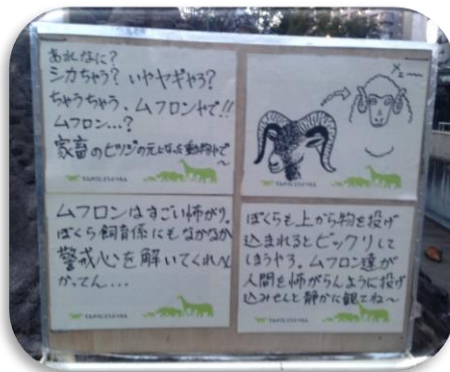 あれなに?
シカちゃう? いやヤギやろ?
ちゃうちゃう、ムフロンやで!!
ムフロン…?
家畜のヒツジの元となった動物やで
〜
メェ〜
ムフロンはすごい怖がり。
ぼくら飼育係にもなかなか
警戒心を解いてくれへん
かってん…
ぼくらも上から物を投げ
込まれるとビックリして
しまうやろ。ムフロン達が
人間を怖がらんように投げ
込みせんと静かに観てね〜